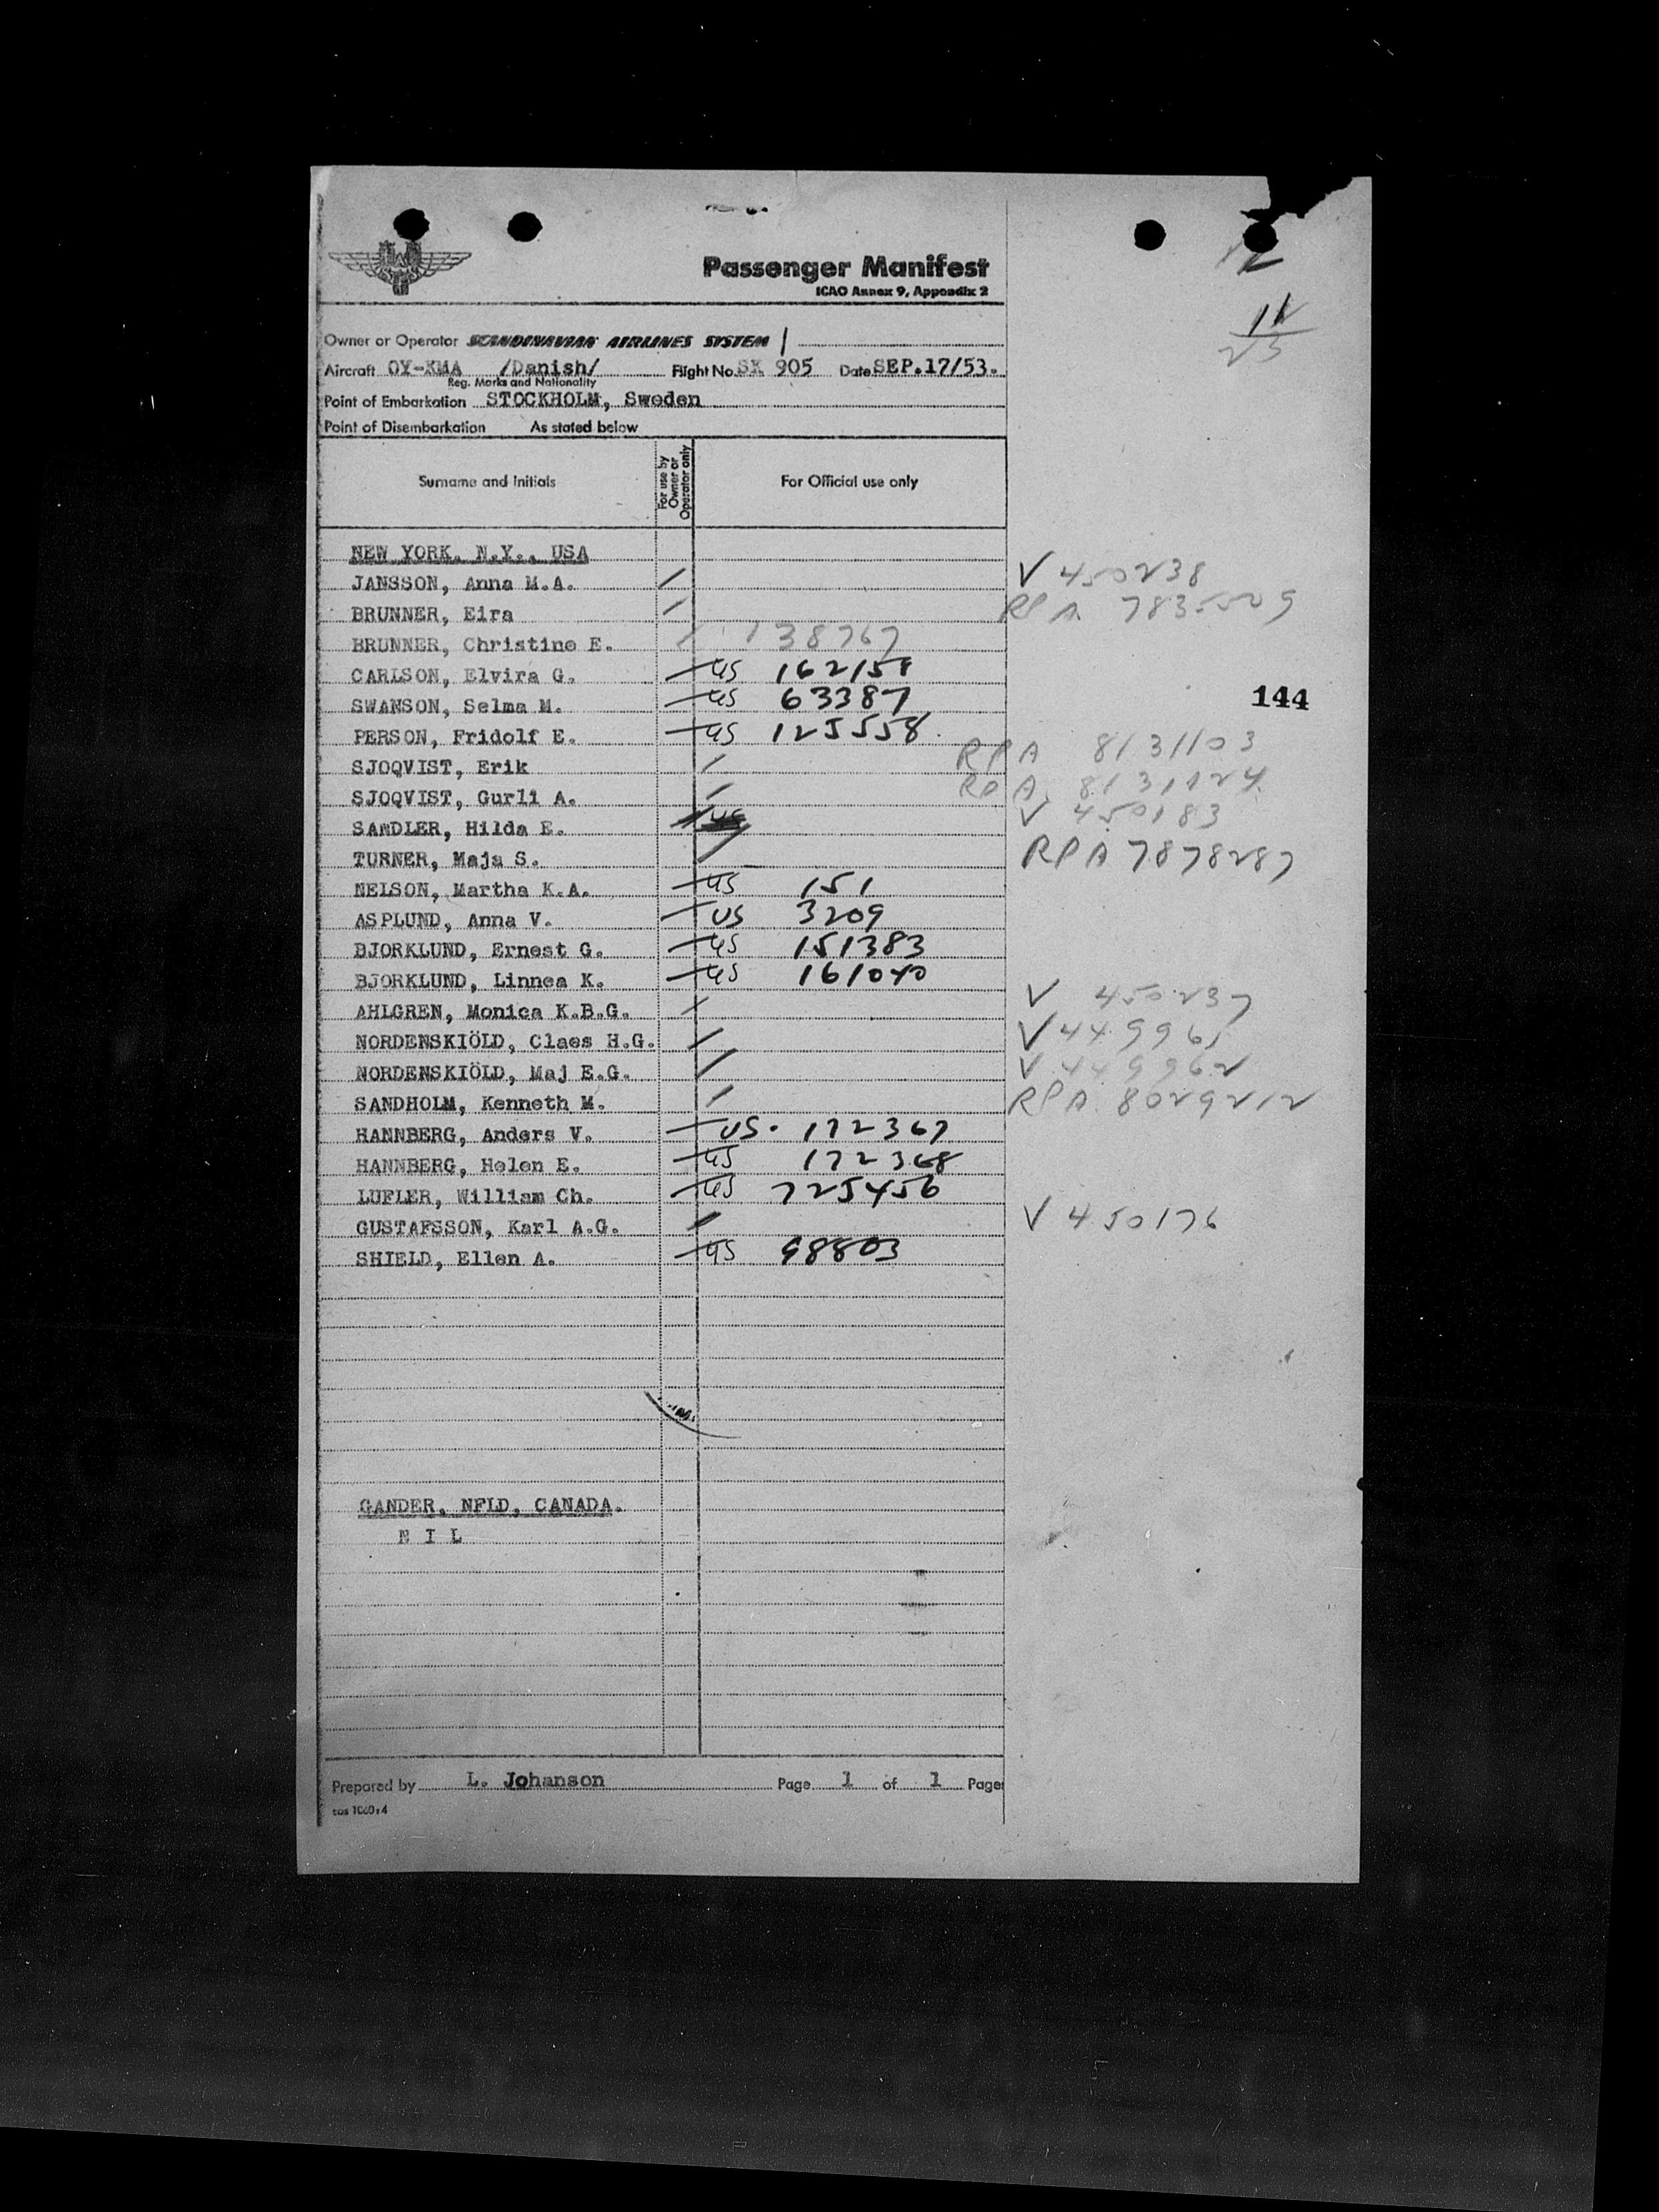 Passenger Manifest
ICAO Annex 9, Appendix 2
12
11
23
Owner or Operator SCANDINAVIAN AIRLINES SYSTEM
Aircraft OY-KMA /Danish/ Flight No. SK 905 Date SEP.17/53.
Reg. Marks and Nationality
Point of Embarkation STOCKHOLM, Sweden
Point of Disembarkation As stated below
Surname and Initials For use by Owner or Operator only For Official use only
NEW YORK, N.Y., USA
JANSSON, Anna M.A. / V 450238
BRUNNER, Eira / RPA 7835509
BRUNNER, Christine E. / 138767
CARLSON, Elvira G. US 162158
SWANSON, Selma M. US 63387
144
PERSON, Fridolf E. US 125558
SJOQVIST, Erik / RPA 8131103
SJOQVIST, Gurli A. / RPA 8131124
SANDLER, Hilda E. / V 450183
TURNER, Maja S. / RPA 7878287
NELSON, Martha K.A. US 151
ASPLUND, Anna V. US 3209
BJORKLUND, Ernest G. US 151383
BJORKLUND, Linnea K. US 161040
AHLGREN, Monica K.B.G. / V 450237
NORDENSKIÖLD, Claes H.G. / V 449961
NORDENSKIÖLD, Maj E.G. / V 449962
SANDHOLM, Kenneth M. / RPA 8029212
HANNBERG, Anders V. US. 172367
HANNBERG, Helen E. US 172368
LUFLER, William Ch. US 725456
GUSTAFSSON, Karl A.G. / V 450176
SHIELD, Ellen A. US 98803
GANDER, NFLD, CANADA.
N I L
Prepared by L. Johanson Page 1 of 1 Pages